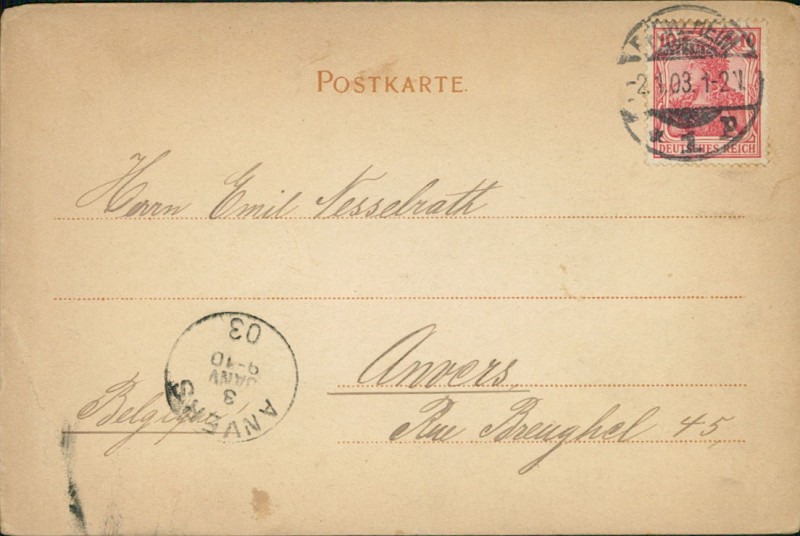 POSTKARTE.
10 10
PFORZHEIM
-2.1.03. 1-2N.
* 1 P
DEUTSCHES REICH
Herrn Emil Nesselrath
ANVERS
3
JANV
9-10
03
Anvers,
Belgique
Rue Breughel 45,